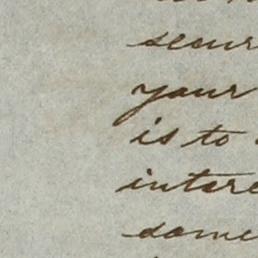 secur
your
is to
intere
some